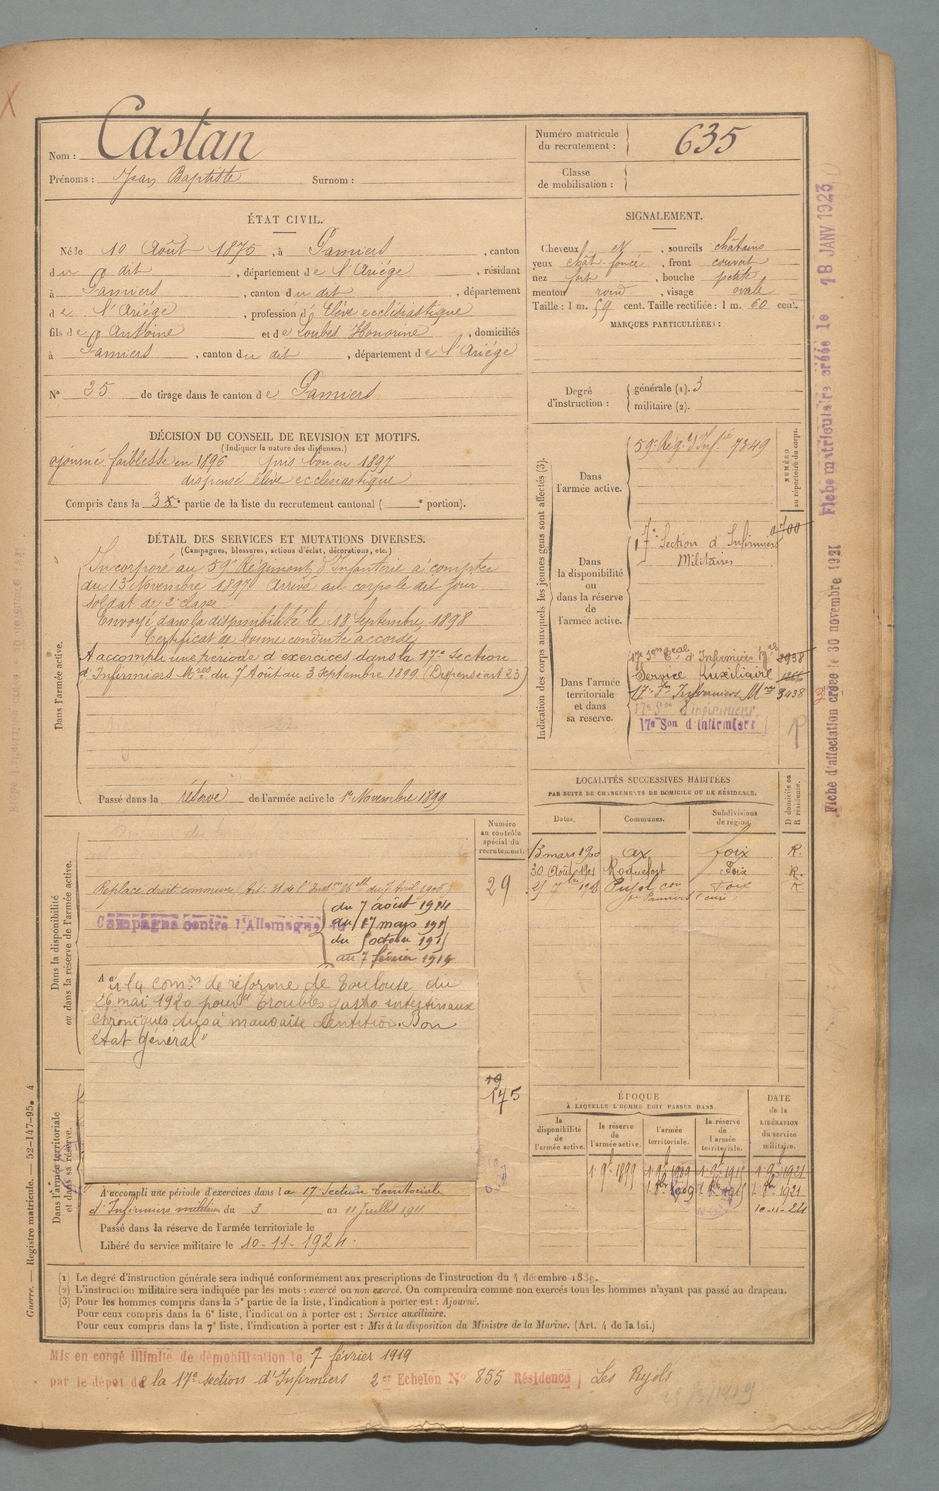 Nom : Castan
Prénoms : Jean Baptiste Surnom :
Numéro matricule du recrutement : 635
Classe de mobilisation :
ÉTAT CIVIL.
Né le 10 Août 1875, à Pamiers, canton
du dit, département de l'Ariège, résidant
à Pamiers, canton du dit, département
de l'Ariège, profession d'Elève ecclésiastique
fils de Antoine et de Loubes Honorine, domiciliés
à Pamiers, canton du dit, département de l'Ariège
N° 35 de tirage dans le canton de Pamiers
SIGNALEMENT.
Cheveux et, sourcils châtains
yeux chât. foncé, front couvert
nez fort, bouche petite
menton rond, visage ovale
Taille : 1 m. 59 cent. Taille rectifiée : 1 m. 60 cent.
MARQUES PARTICULIÈRES :
Degré d'instruction : générale (1). 3
militaire (2).
DÉCISION DU CONSEIL DE REVISION ET MOTIFS.
(Indiquer la nature des dispenses.)
ajourné faiblesse en 1896 pris bon en 1897
dispensé élève ecclésiastique
Compris dans la 3e partie de la liste du recrutement cantonal ( e portion).
DÉTAIL DES SERVICES ET MUTATIONS DIVERSES.
(Campagnes, blessures, actions d'éclat, décorations, etc.)
Dans l'armée active.
Incorporé au 59e Régiment d'Infanterie à compter
du 13 Novembre 1897 Arrivé au corps le dit jour
soldat de 2e classe
Envoyé dans la disponibilité le 18 Septembre 1898
Certificat de bonne conduite accordé
A accompli une période d'exercices dans la 17e Section
d'Infirmiers Mres du 7 Août au 3 Septembre 1899 (Dispensé art 23)
Passé dans la réserve de l'armée active le 1er Novembre 1899
Indication des corps auxquels les jeunes gens sont affectés (3).
NUMÉRO au répertoire du corps.
Dans l'armée active. 59e Rég. d'Inf. 7349
Dans la disponibilité ou dans la réserve de l'armée active.
17e Section d'Infirmiers
Militaires
Dans l'armée territoriale et dans sa réserve.
Service Auxiliaire
17e Son Infirmiers Mres 3438
17e Son d'infirmiers
Fiche d'affectation créée le 30 novembre 1921
Fiche matriculaire créée le 18 JANV 1923
LOCALITÉS SUCCESSIVES HABITÉES
PAR SUITE DE CHANGEMENTS DE DOMICILE OU DE RÉSIDENCE.
Dates. Communes. Subdivisions de région. D domicile ou R résidence.
13 mars 1900 Ax Foix R.
30 Août 1901 Roquefort Foix R.
Foix R
Dans la disponibilité ou dans la réserve de l'armée active
Numéro au contrôle spécial du recrutement.
29
Campagne contre l'Allemagne
du 7 août 1914
du octobre
au 7 février 1919
à la comon de réforme de Toulouse du
26 mai 1920 pour "troubles gastro intestinaux
chroniques dus à mauvaise dentition. Bon
état général"
175
Dans l'armée territoriale et dans sa réserve.
A accompli une période d'exercices dans la 17 Section Territoriale
d'Infirmiers militaires du 3 au 11 juillet 1911
Passé dans la réserve de l'armée territoriale le
Libéré du service militaire le 10-11-1924.
ÉPOQUE
À LAQUELLE L'HOMME DOIT PASSER DANS
la disponibilité de l'armée active. la réserve de l'armée active. l'armée territoriale. la réserve de l'armée territoriale. DATE de la LIBÉRATION du service militaire.
(1) Le degré d'instruction générale sera indiqué conformément aux prescriptions de l'instruction du 4 décembre 1889.
(2) L'instruction militaire sera indiquée par les mots : exercé ou non exercé. On comprendra comme non exercés tous les hommes n'ayant pas passé au drapeau.
(3) Pour les hommes compris dans la 5e partie de la liste, l'indication à porter est : Ajourné.
Pour ceux compris dans la 6e liste, l'indication à porter est : Service auxiliaire.
Pour ceux compris dans la 7e liste, l'indication à porter est : Mis à la disposition du Ministre de la Marine. (Art. 4 de la loi.)
Guerre. — Registre matricule. — 52-147-95. 4
Mis en congé illimité de démobilisation le 7 février 1919
par le dépôt de la 17e section d'Infirmiers 2e Echelon N° 855 Résidence Les Pujols